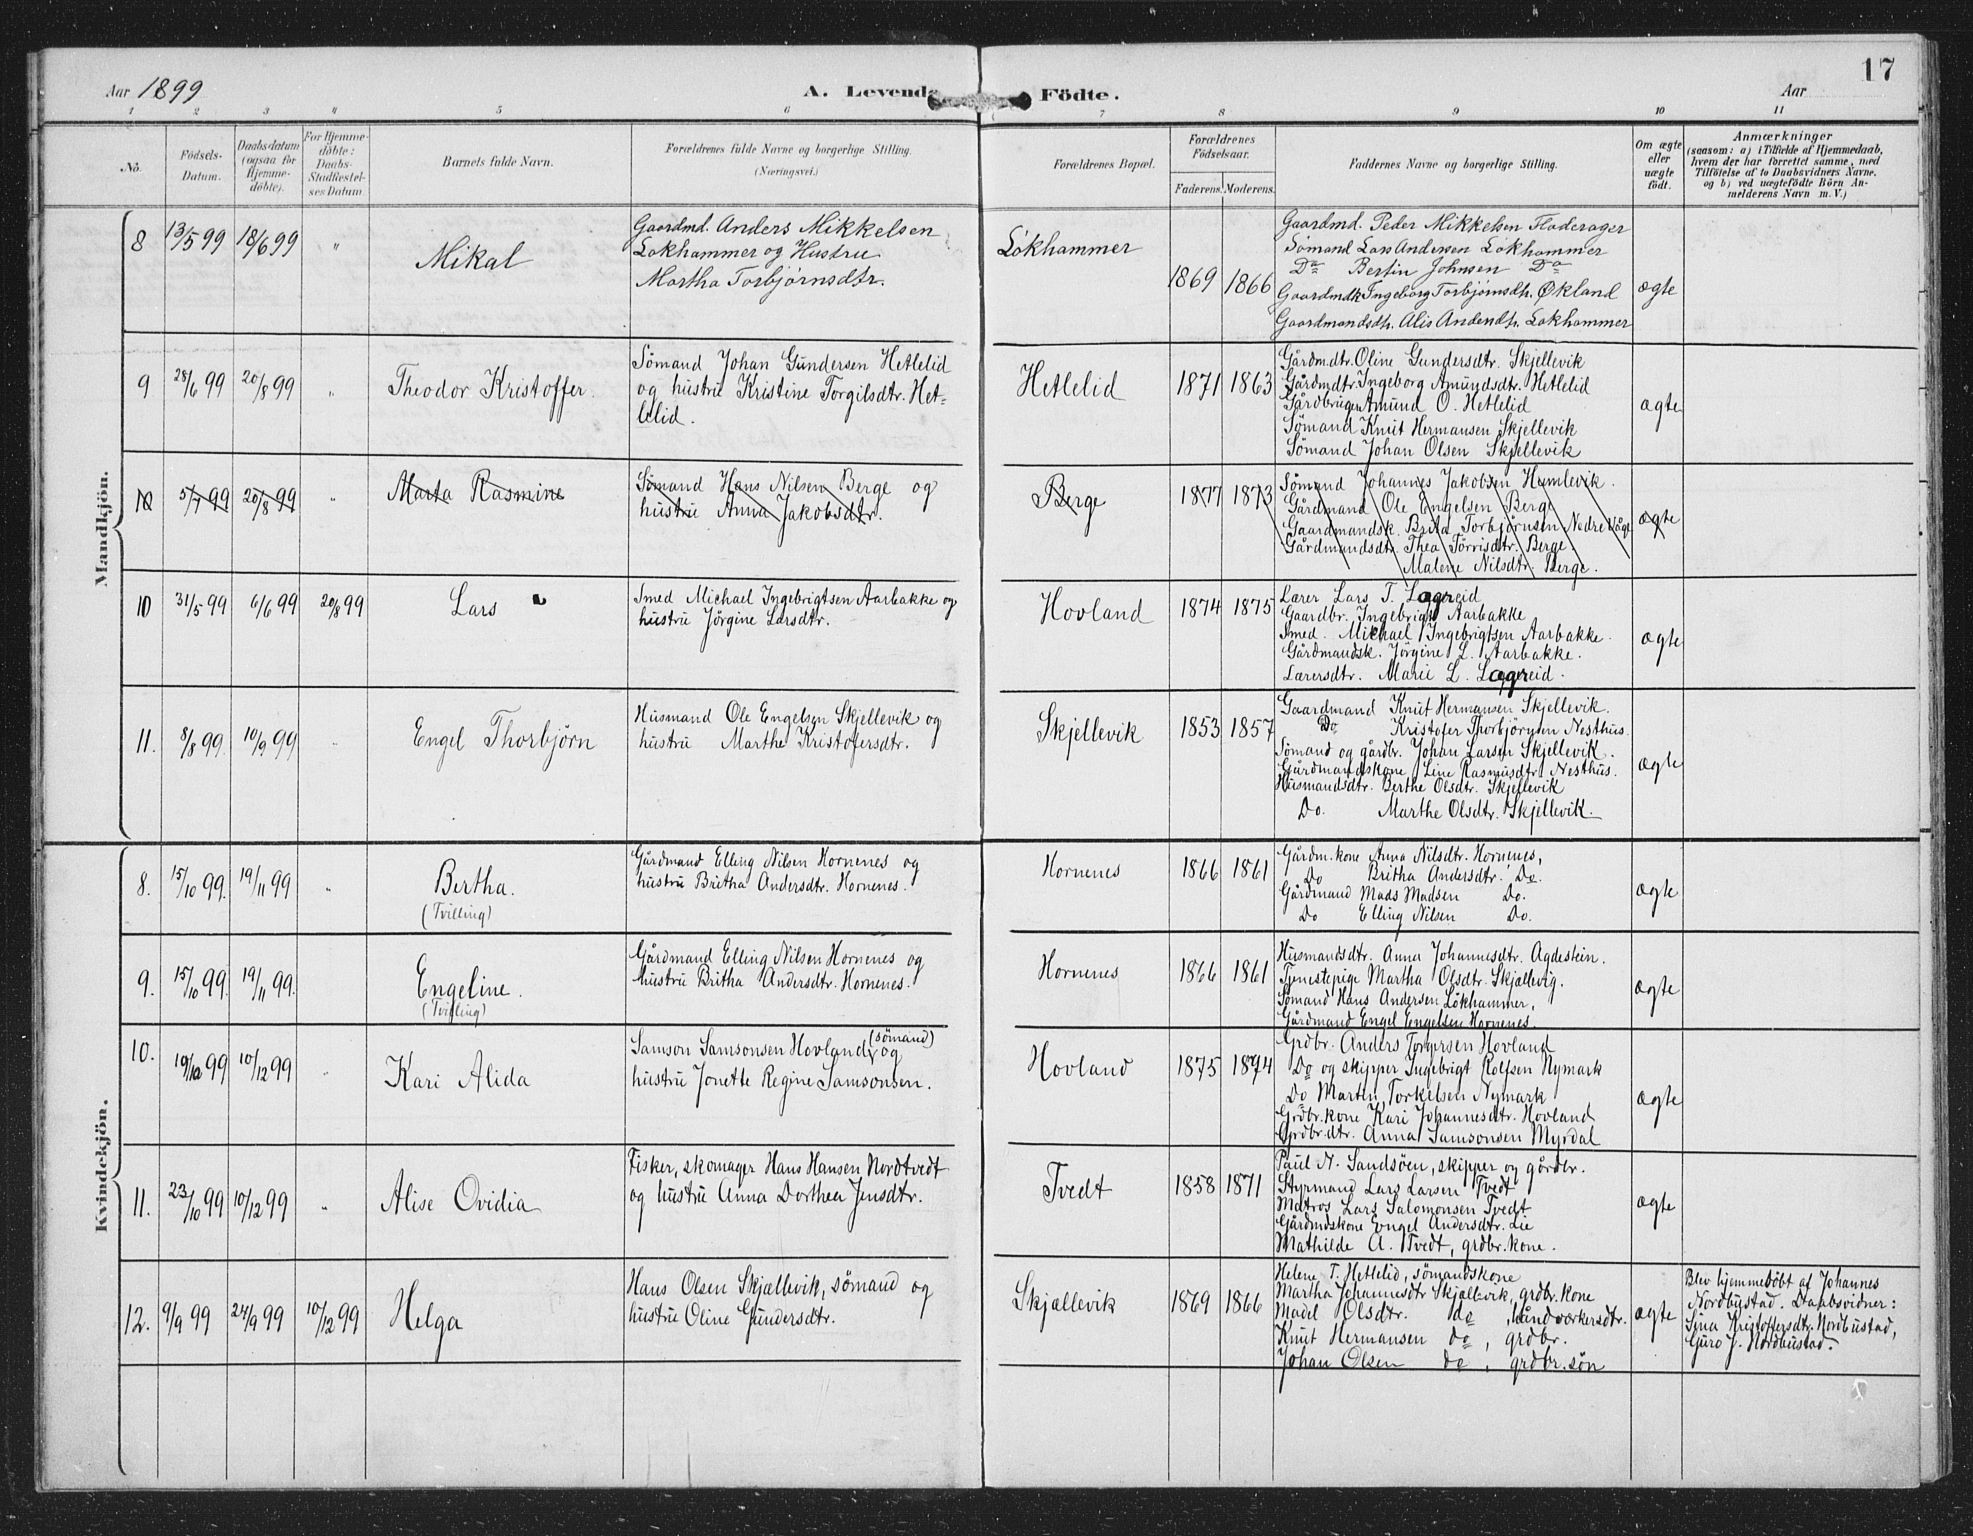 Aar 1899
A. Levende Födte.
17
Aar
1 2 3 " 5 6 7 8 9 10 11
No.
Födsels-Datum.
Daabsdatum (ogsaa for Hjemme-döbte).
For Hjemme-döbte: Daabs-Stadfæstel-ses Datum
Barnets fulde Navn.
Forældrenes fulde Navne og borgerlige Stilling.
(Næringsvei.)
Forældrenes Bopæl.
Forældrenes Födselsaar.
Faderens. Moderens.
Faddernes Navne og borgerlige Stilling.
Om ægte eller uægte födt.
Anmærkninger
(saasom: a) i Tilfælde af Hjemmedaab,
hvem der har forrettet samme, med
Tilföielse af to Daabsvidners Navne,
og b) ved uægtefödte Börn An-
melderens Navn m. V.)
Mandkjön.
8 13/5 99 18/6 99 "
Mikal
Gaardmd. Anders Mikkelsen
Lokhammer og Hustru
Martha Torbjørnsdtr.
Lökhammer
1869 1866
Gaardmd. Peder Mikkelsen Fladerager
Sömand Lars Andersen Lokhammer
Do Bertin Johnsen Do
Gaardmdk Ingeborg Torbjørnsdtr. Økland
Gaardmandsdtr. Alis Andersdtr. Lokhammer
ægte
9 28/6 99 20/8 99 "
Theodor Kristoffer.
Sömand Johan Gundersen Hetlelid
og hustru Kristine Torgilsdtr. Het=
lelid.
Hetlelid
1871 1863
Gårdm.dtr. Oline Gundersdtr. Skjellevik
Gårdmdtr. Ingeborg Amundsdtr. Hetlelid
Gårdbruger Amund O. Hetlelid
Sömand Knut Hermansen Skjellevik
Sömand Johan Olsen Skjellevik
ægte
10 5/7 99 20/8 99 "
Marta Rasmine
Sömand Hans Nilsen Berge og
hustru Anna Jakobsdtr.
Berge
1877 1873
Sömand Johannes Jakobsen Humlevik.
Gårdmand Ole Engelsen Berge
Gaardmandsk. Brita Torbjörnsen Nedre Våge
Gårdmandsdtr. Thea Törrisdtr. Berge
Malene Nilsdtr. Berge.
ægte
10 31/5 99 6/6 99 20/8 99
Lars
Smed Michael Ingebrigtsen Aarbakke og
hustru Jörgine Larsdtr.
Hovland
1874 1875
Lærer Lars T. Lægreid
Gaardbr. Ingebrigt Aarbakke
Smed. Michael Ingebrigtsen Aarbakke.
Gårdmandsk. Jörgine L. Aarbakke.
Lærersdtr. Marie L. Lægreid.
ægte
11. 8/8 99. 10/9 99 "
Engel Thorbjörn
Husmand Ole Engelsen Skjellevik og
hustru Marthe Kristofersdtr.
Skjellevik
1853 1857
Gaardmand Knut Hermansen Skjellevik.
Do Kristofer Thorbjörnsen Nesthus.
Sömand og gårdbr. Johan Larsen Skjellevik.
Gårdmandskone Line Rasmusdtr. Nesthus.
Husmandsdtr. Berthe Olsdtr. Skjellevik
Do. Marthe Olsdtr. Skjellevik.
ægte
Kvindekjön.
8. 15/10 99. 19/11 99 "
Bertha.
(Tvilling)
Gårdmand Elling Nilsen Hornenes og
hustru Britha Andersdtr. Hornenes.
Hornenes
1866 1861
Gårdm.kone Anna Nilsdtr. Hornenes,
Do Britha Andersdtr. Do.
Gårdmand Mads Madsen Do.
Do Elling Nilsen Do.
ægte
9. 15/10 99. 19/11 99.
Engeline.
(Tvilling)
Gårdmand Elling Nilsen Hornenes og
hustru Britha Andersdtr. Hornenes.
Hornenes
1866 1861
Husmandsdtr. Anna Johannesdtr. Agdestein.
Tjenestepige Martha Olsdtr. Skjællevig.
Sömand Hans Andersen Lökhammer,
Gårdmand Engel Engelsen Hornenes
ægte
10. 10/12 99 "
Kari Alida
Samson Samsonsen Hovland (sömand) og
hustru Jonette Regine Samsonsen.
Hovland
1875 1874
Grdbr. Anders Torgersen Hovland
Do og skipper Ingebrigt Rolfsen Nymark
Do Martin Torkelsen Nymark
Grdbr.kone Kari Johannesdtr. Hovland
Grdbr.dtr. Anna Samsonsen Myrdal
ægte
11. 23/10 99 10/12 99 "
Alise Ovidia
Fisker, skomager Hans Hansen Nordtvedt
og hustru Anna Dorthea Jensdtr.
Tvedt
1858 1871
Paul N. Sandsöen, skipper og gårdbr.
Styrmand Lars Larsen Tvedt
Matros Lars Salomonsen Tvedt
Gårdmdskone Engel Andersdtr. Lie
Mathilde A. Tvedt, grdbr.kone.
ægte
12. 9/9 99 24/9 99 10/12 99
Helga
Hans Olsen Skjællevik, sömand og
hustru Oline Gundersdtr.
Skjællevik
1869 1866
Helene T. Hetlelid, sömandskone
Martha Johannesdtr Skjællevik, grdbr.kone
Madel Olsdtr. do, håndværkersdtr.
Knut Hermansen do, grdbr.
Johan Olsen do, grdbr.sön
ægte
Blev hjemmedöbt af Johannes
Nordbustad. Daabsvidner:
Sina Kristoffersdtr. Nordbustad,
Guro J. Nordbustad.